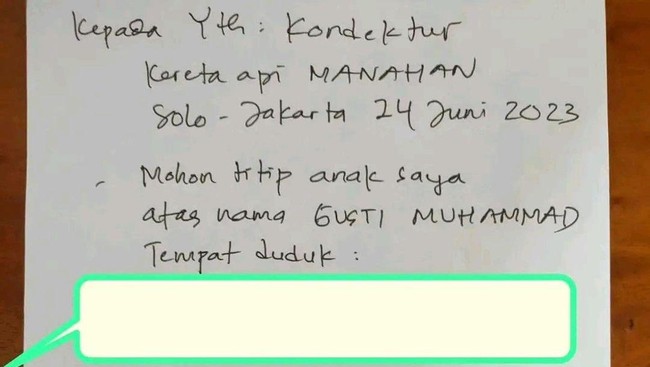 Kepada Yth: Kondektur
Kereta api MANAHAN
Solo - Jakarta 24 Juni 2023
- Mohon titip anak saya
atas nama GUSTI MUHAMMAD
Tempat duduk :